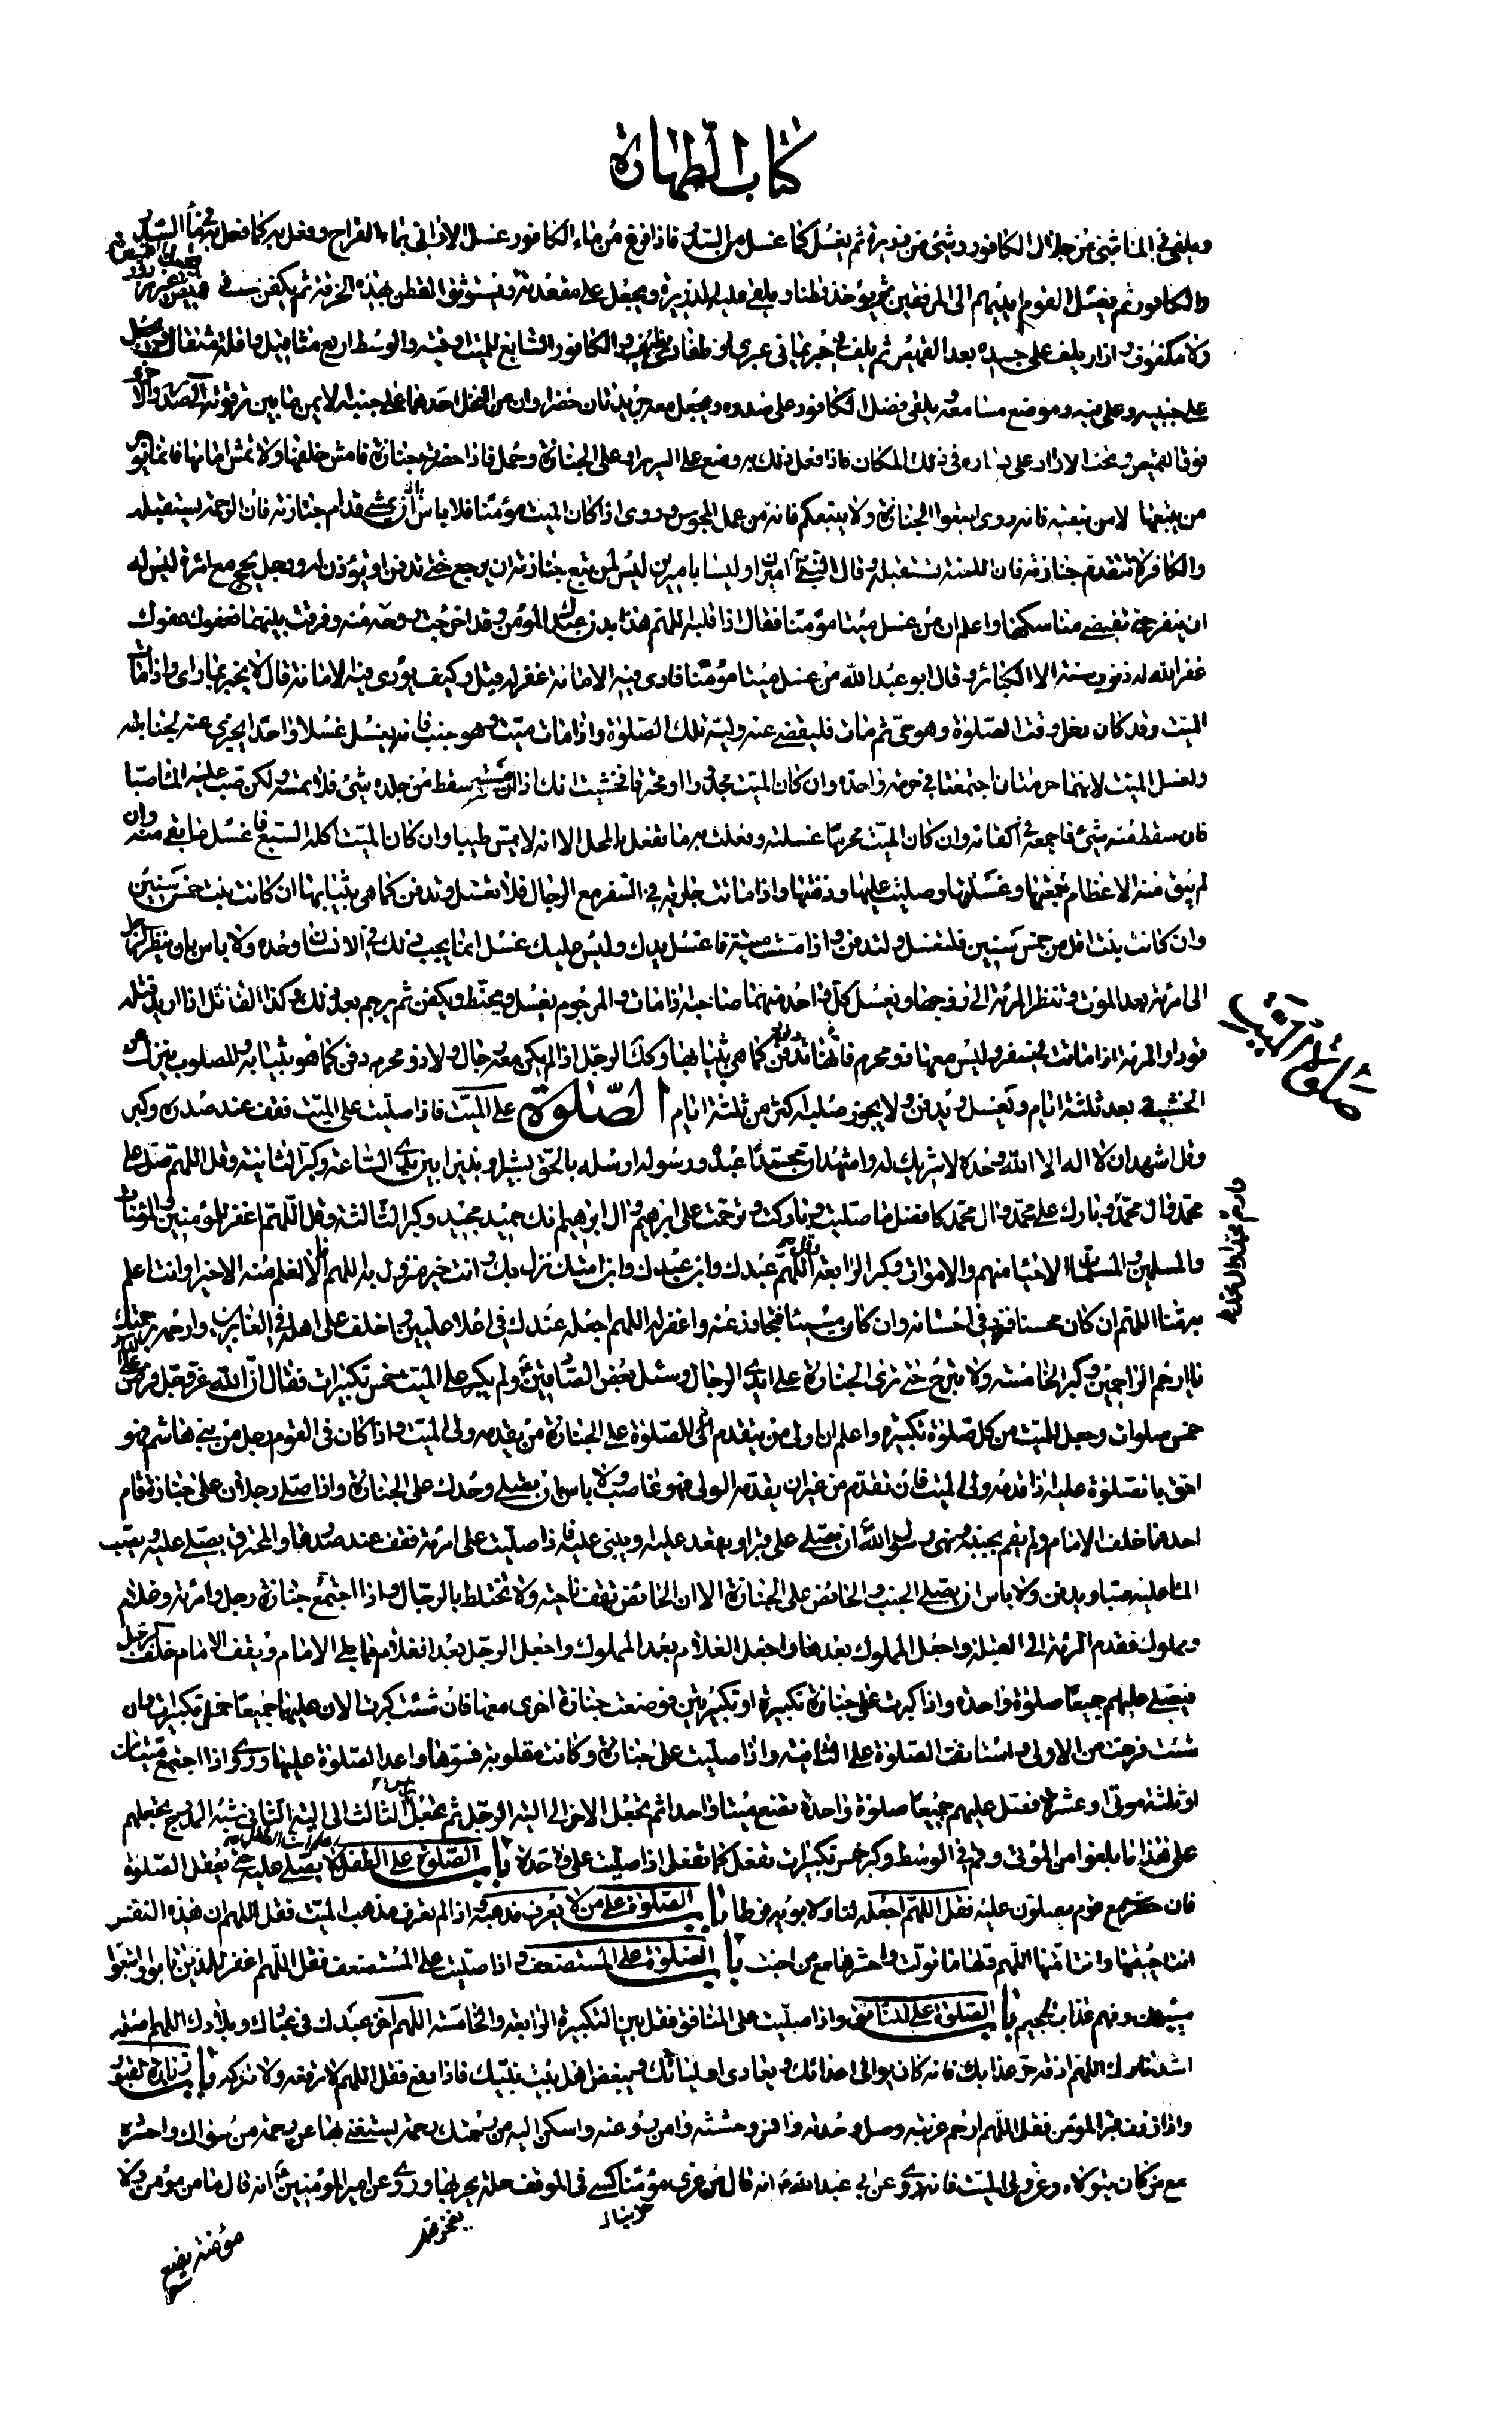 كتاب الطهارة
ويلقى في الماء شئ من جلال الكافور وشئ من ذريرة ثم يغسل كما غسل من السدر فاذا فرغ من ماء الكافور غسل الاواني بماء القراح وفعل به كما فعل في ماء السدر
والكافور ثم يغسل القوم ايديهم الى المرفقين ثم يؤخذ قطنا ويلقى عليه الذريرة ويجعل على مقعدته ويستوثق القطن بهذه الخرقة ثم يكفن في قميص غير مزرور
ولا مكفوف وازار يلف على جسده بعد القميص ثم يلف في حبر يماني عبري او ظفاري نظيف والكافور السايغ للميت اوقية والوسط اربع مثاقيل واقله مثقال ويجعل
على جبينه وعلى فيه وموضع مسامعه ويلقى فضل الكافور على صدره ويجعل معه جريدتان خضراوان من النخل احدهما على جنبه الايمن ما بين ترقوته الى صدره والاخرى
فوق القميص وتحت الازار على يساره في ذلك المكان فاذا فعل ذلك به وضع على السرير او على الجنازة وحمل فاذا حضرت جنازة فامش خلفها ولا تمش امامها فانما يوجر
من يتبعها لا من تبعته فانه روى اتبعوا الجنازة ولا يتبعكم فانه من عمل المجوس وروى اذا كان الميت مؤمنا فلا باس ان يمشى قدام جنازته فان الرحمة يستقبله
والكافر لا تتقدم جنازته فان اللعنة تستقبله وقال النبي اميران وليسا باميرين ليس لمن تبع جنازة ان يرجع حتى تدفن او يؤذن له ورجل يحج مع امرة ليس له
ان ينفر حتى تقضى مناسكها واعلم ان من غسل ميتا مؤمنا فقال اذا قلبه اللهم هذا بدن عبدك المؤمن وقد اخرجت روحه منه وفرقت بينهما فعفوك عفوك
غفر الله له ذنوب سنة الا الكبائر وقال ابو عبد الله من غسل ميتا مؤمنا فادى فيه الامانة غفر له قيل وكيف يؤدى فيه الامانة قال لا يخبر بما راى واذا مات
الميت وقد كان دخل وقت الصلوة وهو حي ثم مات فليقضى عنه وليه تلك الصلوة واذا مات ميت وهو جنب فانه يغسل غسلا واحدا يجزى عنه لجنابته
ولغسل الميت لانهما حرمتان اجتمعتا في حرمة واحدة وان كان الميت مجدورا او محترقا فخشيت انك اذا مسسته سقط من جلده شئ فلا تمسه ولكن صب عليه الماء صبا
فان سقط منه شئ فاجمعه في اكفانه وان كان الميت محرما غسلته وفعلت به ما تفعل بالمحل الا انه لا يمس طيبا وان كان الميت اكله السبع فاغسل ما بقى منه وان
لم يبق منه الا عظام جمعتها وغسلتها وصليت عليها ودفنتها واذا ماتت جارية في السفر مع الرجال فلا تغسل وتدفن كما هي بثيابها ان كانت بنت خمس سنين
وان كانت بنت اقل من خمس سنين فلتغسل ولتدفن واذا مسست ميتة فاغسل يدك وليس عليك غسل انما يجب ذلك في الانسان وحده ولا باس بان ينظر الرجل
الى امرئته بعد الموت وتنظر المرئة الى زوجها ويغسل كل واحد منهما صاحبه اذا مات والمرجوم يغسل ويحنط ويكفن ثم يرجم بعد ذلك وكذا القاتل اذا اريد قتله
قودا والمرئة اذا ماتت في سفر وليس معها ذو محرم فانها تدفن كما هي بثيابها وكك الرجل اذا لم يكن معه رجال ولا ذو محرم دفن كما هو بثيابه والمصلوب ينزل عن
الخشبة بعد ثلثة ايام ويغسل ويدفن ولا يجوز صلبه اكثر من ثلثة ايام الصلوة على الميت فاذا صليت على الميت فقف عند صدره وكبر
وقل اشهد ان لا اله الا الله وحده لا شريك له واشهد ان محمدا عبده ورسوله ارسله بالحق بشيرا ونذيرا بين يدي الساعة وكبر الثانية وقل اللهم صل على
محمد وآل محمد وبارك على محمد وآل محمد كافضل ما صليت وباركت وترحمت على ابرهيم وآل ابرهيم انك حميد مجيد وكبر الثالثة وقل اللهم اغفر للمؤمنين والمؤمنات
والمسلمين والمسلمات الاحياء منهم والاموات وكبر الرابعة وقل اللهم عبدك وابن عبدك وابن امتك نزل بك وانت خير منزول به اللهم انا لا نعلم منه الا خيرا وانت اعلم
به منا اللهم ان كان محسنا فزد في احسانه وان كان مسيئا فتجاوز عنه واغفر له اللهم اجعله عندك في اعلا عليين واخلف على اهله في الغابرين وارحمه برحمتك
يا ارحم الراحمين وكبر الخامسة ولا تبرح حتى ترى الجنازة على ايدي الرجال وسئل بعض الصادقين لم يكبر على الميت خمس تكبيرات فقال ان الله عز وجل فرض
خمس صلوات وجعل للميت من كل صلوة تكبيرة واعلم ان اولى من يتقدم الى الصلوة على الجنازة من يقدمه ولى الميت واذا كان في القوم رجل من بني هاشم فهو
احق بالصلوة عليه اذا قدمه ولى الميت فان تقدم من غير ان يقدمه الولى فهو غاصب ولا باس ان يصلى وحدك على الجنازة واذا صلى رجلان على جنازة قام
احدهما خلف الامام ولم يقم بجنبه ونهى رسول الله ان يصلى على قبر او يقعد عليه ويبنى عليه فاذا صليت على امرئة فقف عند صدرها والمحترق يصلى عليه ويصب
الماء عليه صبا ويدفن ولا باس ان يصلى الجنب والحائض على الجنازة الا ان الحائض تقف ناحية ولا تختلط بالرجال واذا اجتمع جنازة رجل وامرئة وغلام
ومملوك فقدم المرئة الى القبلة واجعل المملوك بعدها واجعل الغلام بعد المملوك واجعل الرجل بعد الغلام مما يلى الامام ويقف الامام خلف الرجل
فيصلى عليهم جميعا صلوة واحدة واذا كبرت على جنازة تكبيرة او تكبيرتين فوضعت جنازة اخرى معها فان شئت كبرت الان عليهما جميعا خمس تكبيرات وان
شئت فرغت من الاولى واستانفت الصلوة على الثانية واذا صليت على جنازة وكانت مقلوبة فسوها واعد الصلوة عليها وروى اذا اجتمع ميتان
او ثلثة موتى او عشرة فصل عليهم جميعا صلوة واحدة تضع ميتا واحدا ثم تجعل الاخر الى الية الرجل ثم تجعل الثالث الى الية الثاني شبه المدرج تجعلهم
على هذا ما بلغوا من الموتى وقم في الوسط وكبر خمس تكبيرات تفعل كما تفعل اذا صليت على واحدة باب الصلوة على الطفل لا يصلى عليه حتى يعقل الصلوة
فان حضرت مع قوم يصلون عليه فقل اللهم اجعله لنا ولابويه فرطا باب الصلوة على من لا يعرف مذهبه اذا لم تعرف مذهب الميت فقل اللهم ان هذه النفس
انت احييتها وانت امتها اللهم ولها ما تولت واحشرها مع من احبت باب الصلوة على المستضعف واذا صليت على المستضعف فقل اللهم اغفر للذين تابوا واتبعوا
سبيلك وقهم عذاب الجحيم باب الصلوة على المنافق واذا صليت على المنافق فقل بين التكبيرة الرابعة والخامسة اللهم اخز عبدك في عبادك وبلادك اللهم اصله
اشد نارك اللهم اذقه حر عذابك فانه كان يوالى اعدائك ويعادى اوليائك ويبغض اهل بيت نبيك فاذا رفع فقل اللهم لا ترفعه ولا تزكه باب زيارة القبور
واذا زرت قبر المؤمن فقل اللهم ارحم غربته وصل وحدته وانس وحشته وامن روعته واسكن اليه من رحمتك رحمة يستغنى بها عن رحمة من سواك واحشره
مع من كان يتولاه وعز ولى الميت فانه روى عن ابى عبد الله انه قال من عزى مؤمنا كسى في الموقف حلة يحبر بها وروى عن امير المؤمنين انه قال ما من مؤمن ولا
مؤمنة يضع